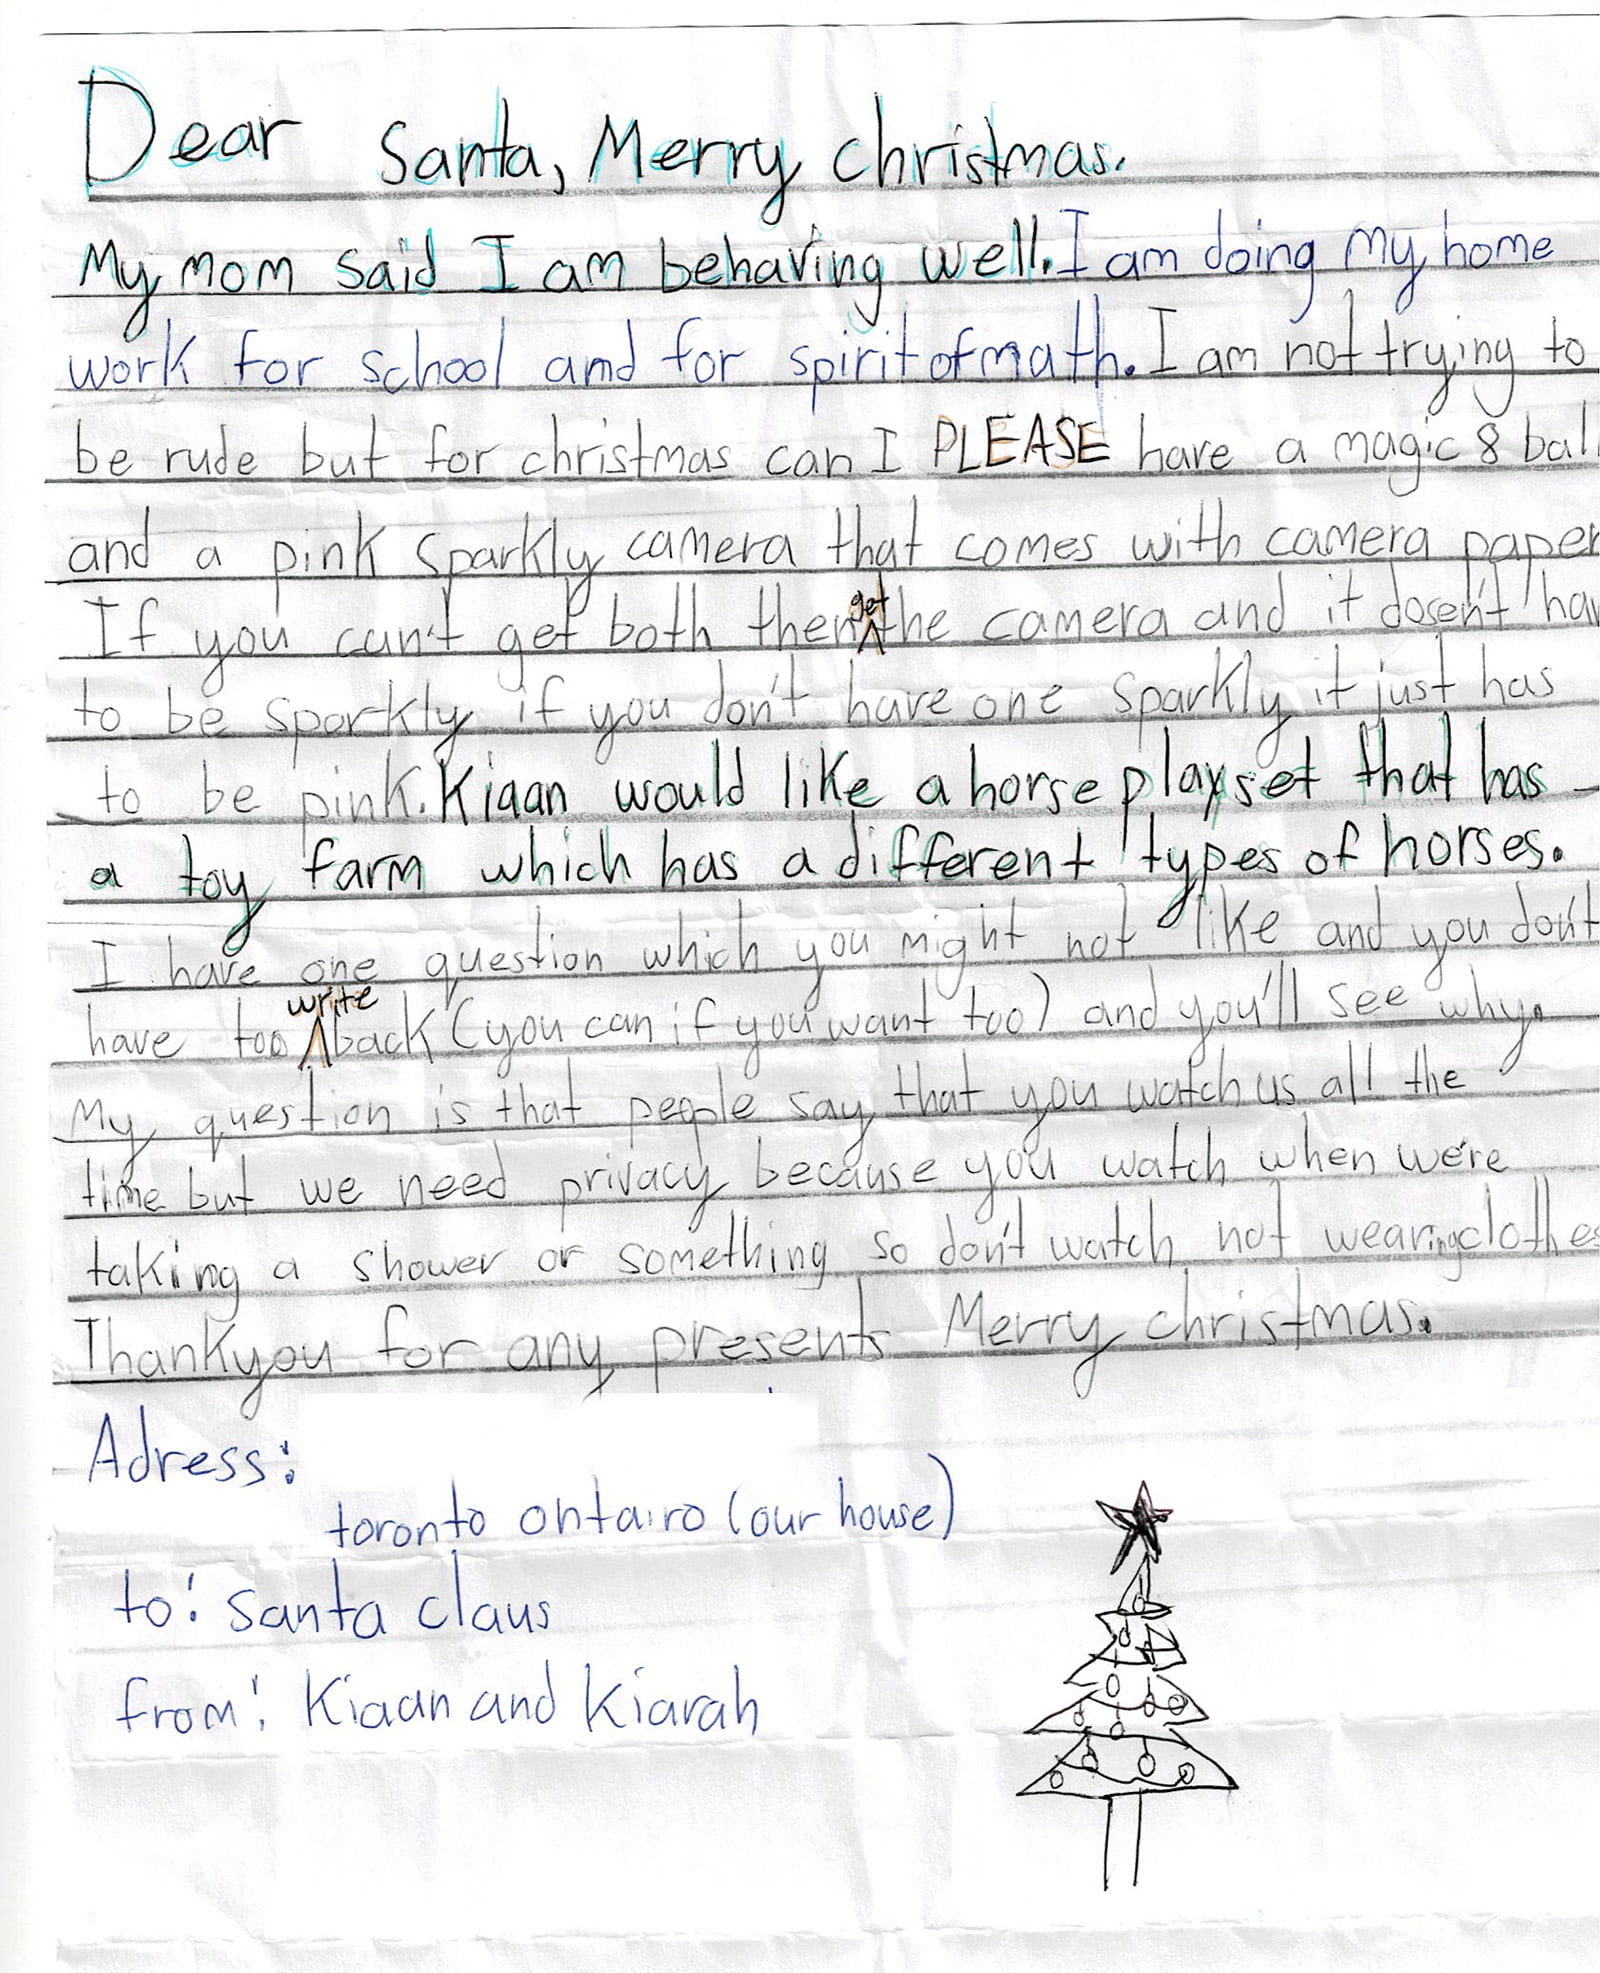 Dear Santa, Merry christmas.
My mom said I am behaving well. I am doing my home
work for school and for spirit of math. I am not trying to
be rude but for christmas can I PLEASE have a magic 8 ball
and a pink sparkly camera that comes with camera paper
If you can't get both then get the camera and it dosen't hav
to be sparkly if you don't have one sparkly it just has
to be pink. Kiaan would like a horse playset that has
a toy farm which has a different types of horses.
I have one question which you might not like and you don't
have too write back (you can if you want too) and you'll see why.
My question is that people say that you watch us all the
time but we need privacy because you watch when we're
taking a shower or something so don't watch not wearing clothes
Thankyou for any presents Merry christmas.
Adress:
toronto ontairo (our house)
to: Santa claus
from: Kiaan and Kiarah